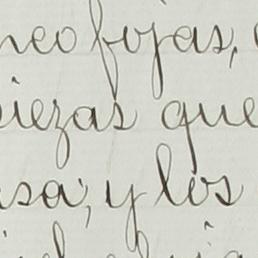 neo fojas,
piezas que
isa; y los